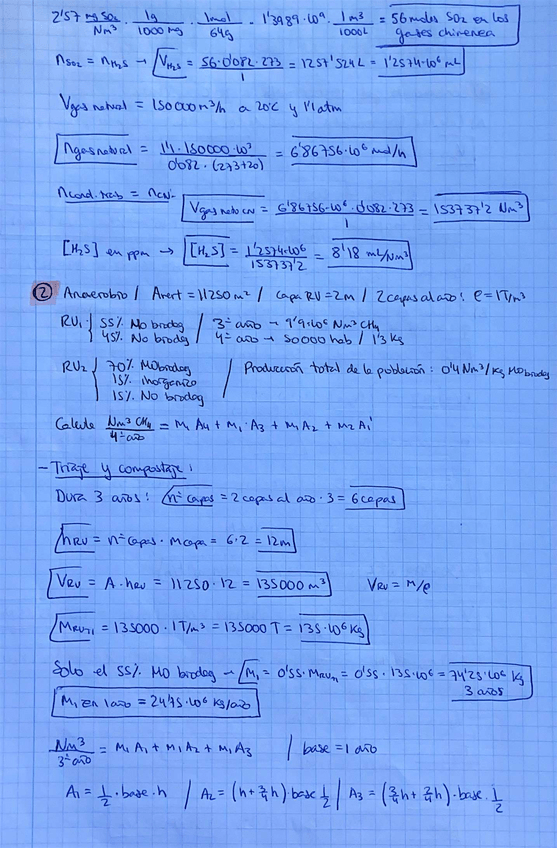 2'57 mg SO₂/Nm³ · 1g/1000 mg · 1mol/64g · 1'3989·10⁹ · 1 m³/1000L = 56 moles SO₂ en los gases chimenea
nSO₂ = nH₂S → VH₂S = 56·0'082·273/1 = 1257'524L = 1'2574·10⁶ mL
Vgas natural = 150000 m³/h a 20ºC y 1'1 atm
ngas natural = 1'1·150000·10³/0'082·(273+20) = 6'86756·10⁶ mol/h
ncond. trab = nCN·
Vgas nat CN = 6'86756·10⁶·0'082·273/1 = 153737'2 Nm³
[H₂S] en ppm → [H₂S] = 1'2574·10⁶/153737'2 = 8'18 mL/Nm³
② Anaerobio / Avert = 11250 m² / Capa RU = 2m / 2 capas al año! ρ = 1T/m³
RU₁ { 55% MO biodeg / 3º año → 9'9·10⁶ Nm³ CH₄
45% No biodeg / 4º año → 50000 hab / 1'3 kg
RU₂ { 70% MO biodeg / Producción total de la población: 0'4 Nm³/kg MO biodeg
15% inorgánico
15% No biodeg
Calcule Nm³ CH₄/4º año = M₁ A₄ + M₁·A₃ + M₁ A₂ + M₂ A₁'
- Triaje y compostaje:
Dura 3 años! nº capas = 2 capas al año · 3 = 6 capas
hRU = nº capas · mcapa = 6·2 = 12m
VRU = A·hRU = 11250·12 = 135000 m³ VRU = M/ρ
MRUT₁ = 135000·1T/m³ = 135000 T = 135·10⁶ kg
Solo el 55% MO biodeg → M₁ = 0'55·MRUT₁ = 0'55·135·10⁶ = 74'25·10⁶ kg/3 años
M₁ en 1 año = 24'75·10⁶ kg/año
Nm³/3º año = M₁ A₁ + M₁ A₂ + M₁ A₃ / base = 1 año
A₁ = 1/2 · base · h / A₂ = (h + 3/4 h) · base 1/2 / A₃ = (3/4 h + 2/4 h) · base · 1/2